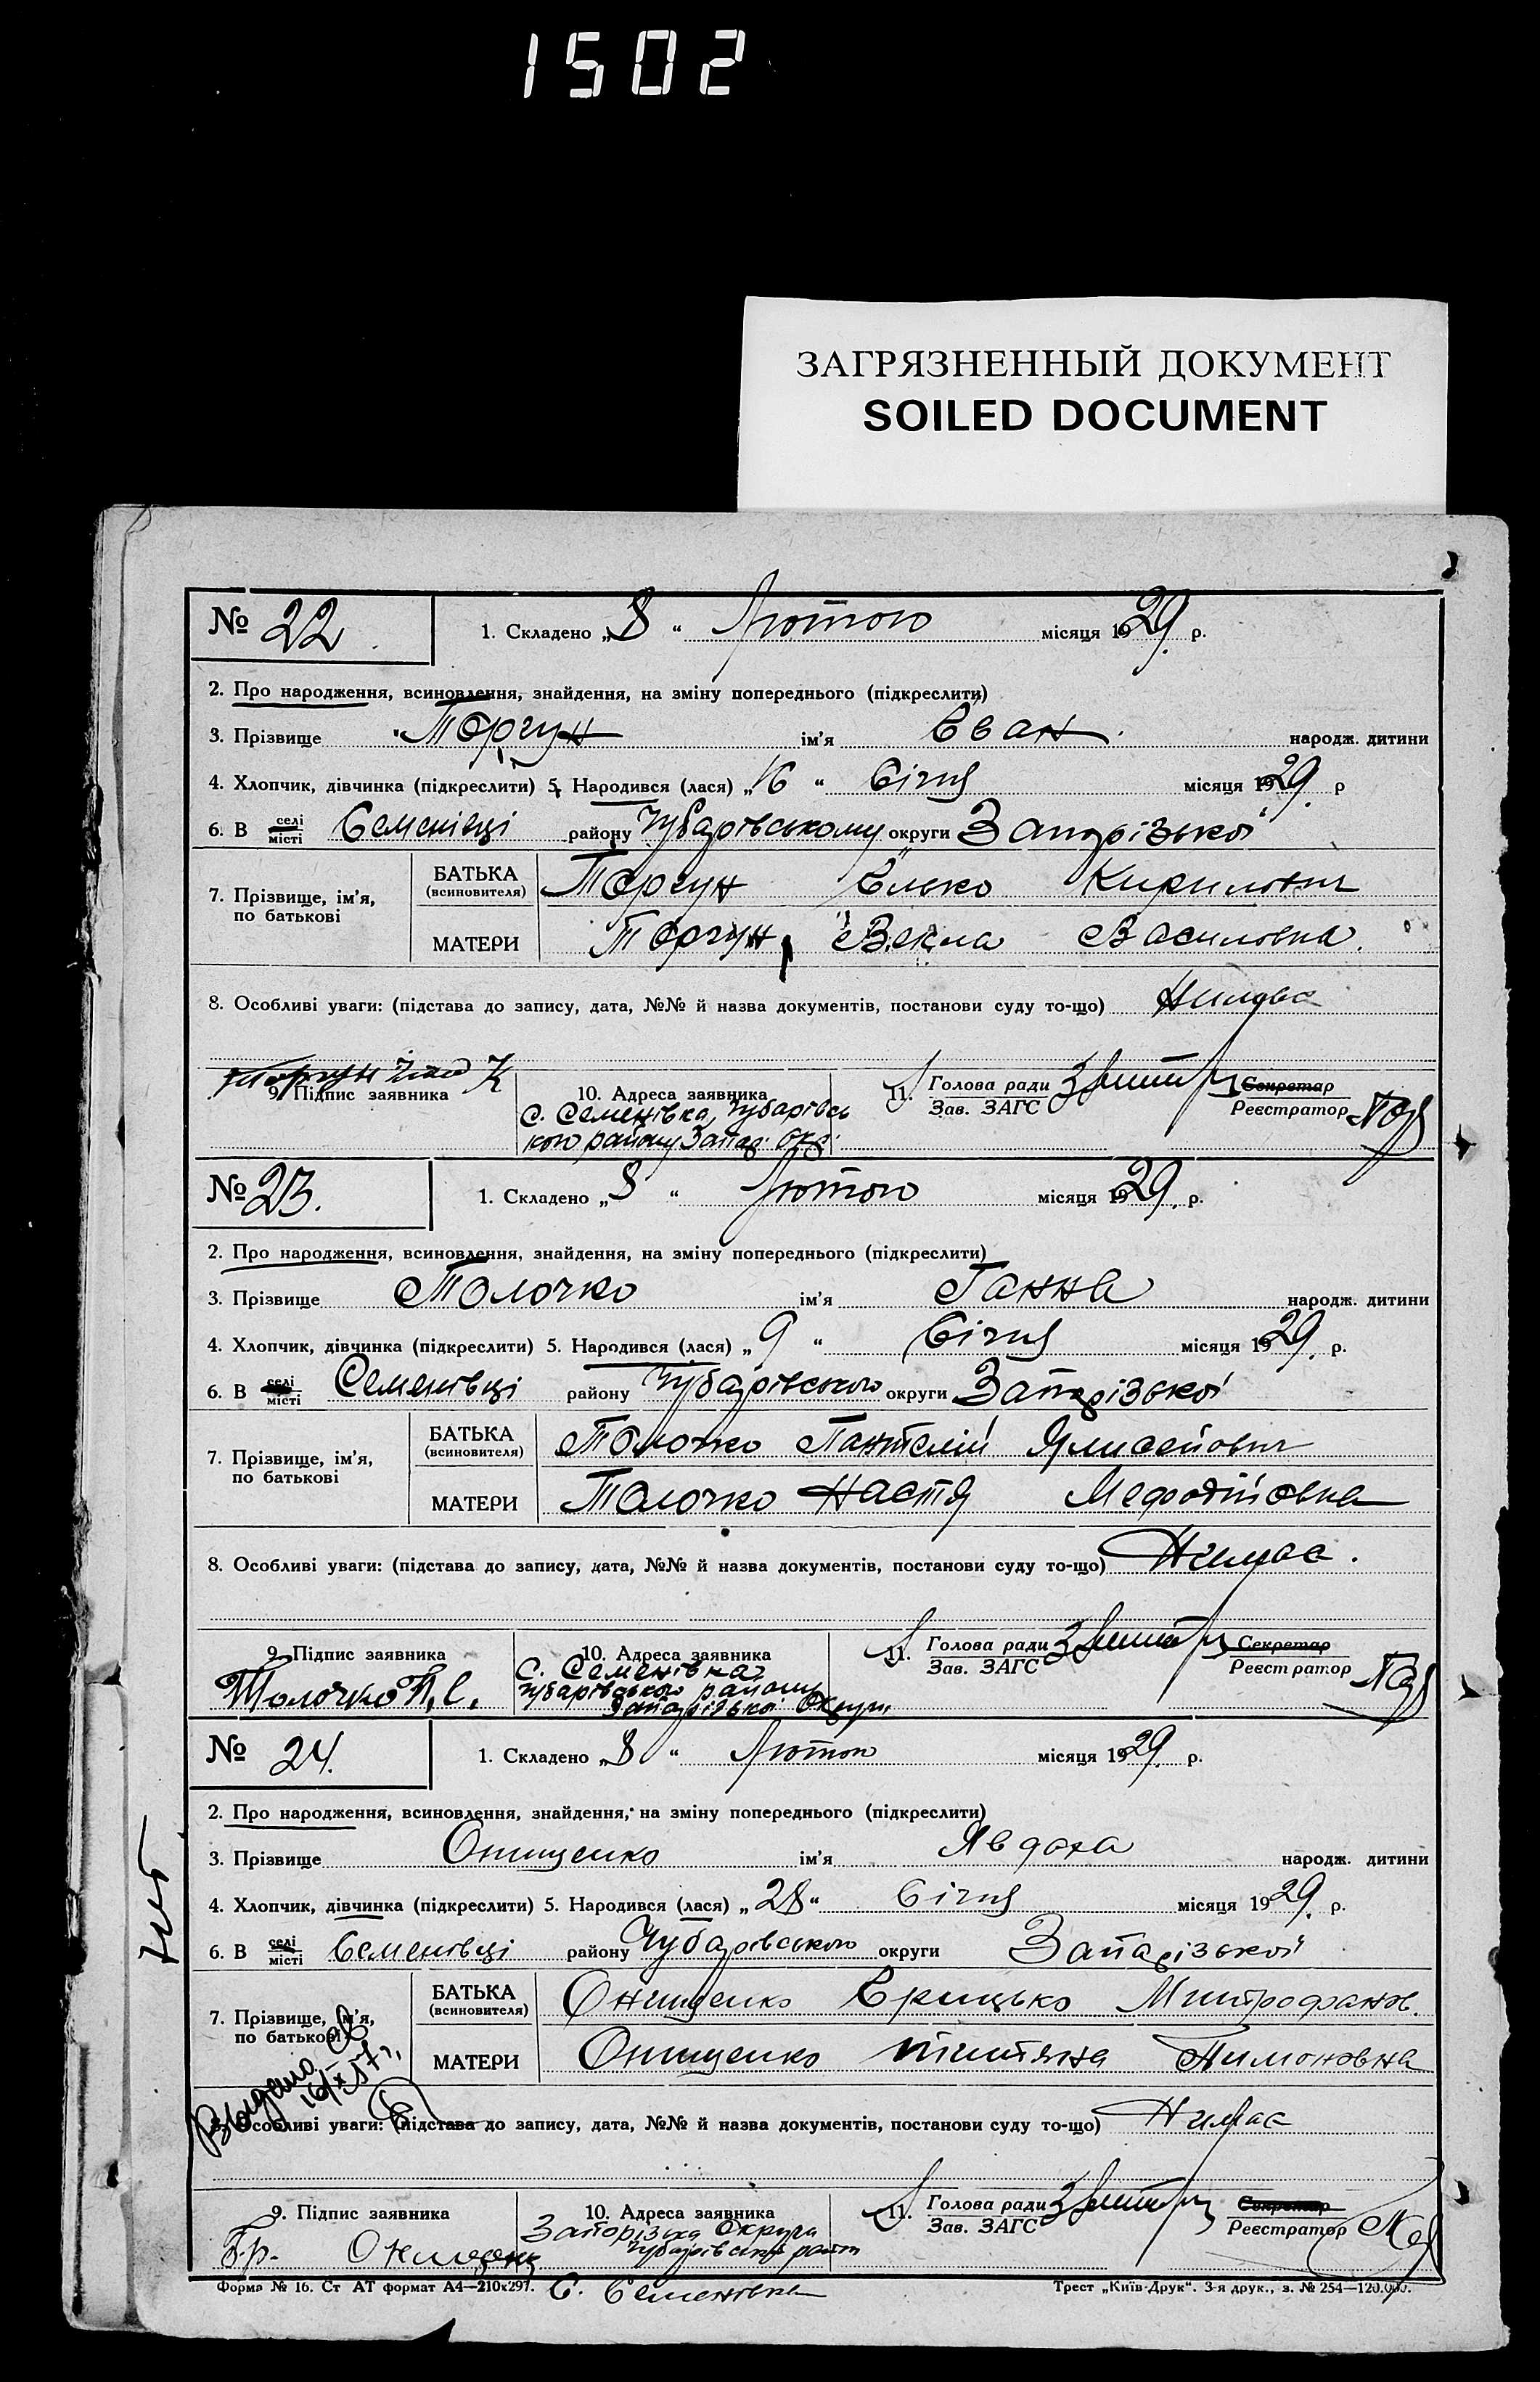 1502
ЗАГРЯЗНЕННЫЙ ДОКУМЕНТ
SOILED DOCUMENT
№ 22 1. Складено „8“ Лютого місяця 1929. р.
2. Про народження, всиновлення, знайдення, на зміну попереднього (підкреслити)
3. Прізвище Торгун ім'я Єван народж. дитини
4. Хлопчик, дівчинка (підкреслити) 5. Народився (лася) „16“ Січня місяця 1929. р
6. В селі місті Семенівці району Чубарівському округи Запорізької
7. Прізвище, ім'я, по батькові
БАТЬКА (всиновителя) Торгун Єлько Кирилович
МАТЕРИ Торгун Векла Василовна.
8. Особливі уваги: (підстава до запису, дата, №№ й назва документів, постанови суду то-що) Нимає
9. Підпис заявника Торгун К
10. Адреса заявника
С. Семенівка, Чубарівсь
кого району Запор. Окр.
11. Голова ради Зав. ЗАГС
Секретар Реєстратор
№ 23. 1. Складено „8“ Лютого місяця 1929. р.
2. Про народження, всиновлення, знайдення, на зміну попереднього (підкреслити)
3. Прізвище Толочко ім'я Ганна народж. дитини
4. Хлопчик, дівчинка (підкреслити) 5. Народився (лася) „9“ Січня місяця 1929. р.
6. В селі місті Семенівці району Чубарівського округи Запорізької
7. Прізвище, ім'я, по батькові
БАТЬКА (всиновителя) Толочко Пантелій Ялисейович
МАТЕРИ Толочко Настя Мефодійовна
8. Особливі уваги: (підстава до запису, дата, №№ й назва документів, постанови суду то-що) Нимає.
9. Підпис заявника
Толочко П. Є.
10. Адреса заявника
С. Семенівка
Чубарівського району
Запорізької Округи
11. Голова ради Зав. ЗАГС
Секретар Реєстратор
№ 24. 1. Складено „8“ Лютого місяця 1929. р.
2. Про народження, всиновлення, знайдення, на зміну попереднього (підкреслити)
3. Прізвище Онищенко ім'я Явдоха народж. дитини
4. Хлопчик, дівчинка (підкреслити) 5. Народився (лася) „28“ Січня місяця 1929. р.
6. В селі місті Семенівці району Чубарівського округи Запорізької
7. Прізвище, ім'я, по батькові
БАТЬКА (всиновителя) Онищенко Грицько Митрофанов.
МАТЕРИ Онищенко Титяна Тимоновна
Выдано св
16/X 57 г.
8. Особливі уваги: (підстава до запису, дата, №№ й назва документів, постанови суду то-що) Нимає
9. Підпис заявника
Гр.
10. Адреса заявника
Запорізька Округа
Чубарівськ район
С. Семеновка
11. Голова ради Зав. ЗАГС
Секретар Реєстратор
Форма № 16. Ст АТ формат А4—210х297.
Трест „Київ-Друк“. 3-я друк., з. № 254—120.000.